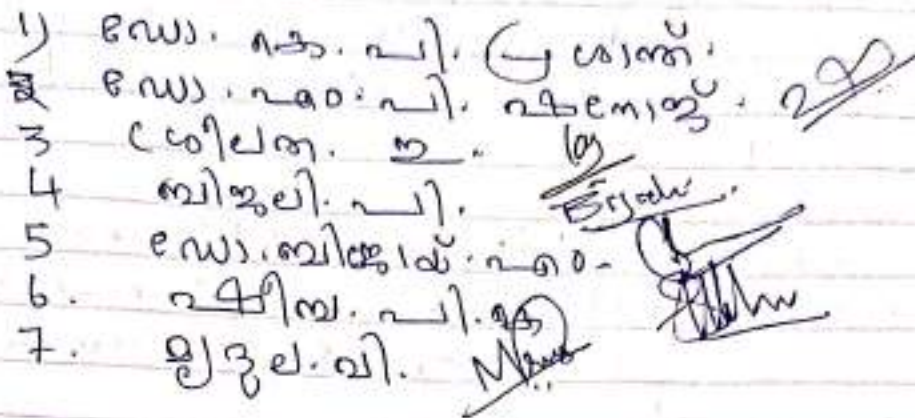 1) ഡോ. കെ. പി. പ്രശാന്ത്.
2 ഡോ. എം. പി. ഷനോജ്.
3 ശ്രീലത. ഇ.
4 ബിജുലി. പി.
5 ഡോ. ബിജോയ്. എം.
6. ഷീന. പി. കെ
7. മൃദുല. വി.